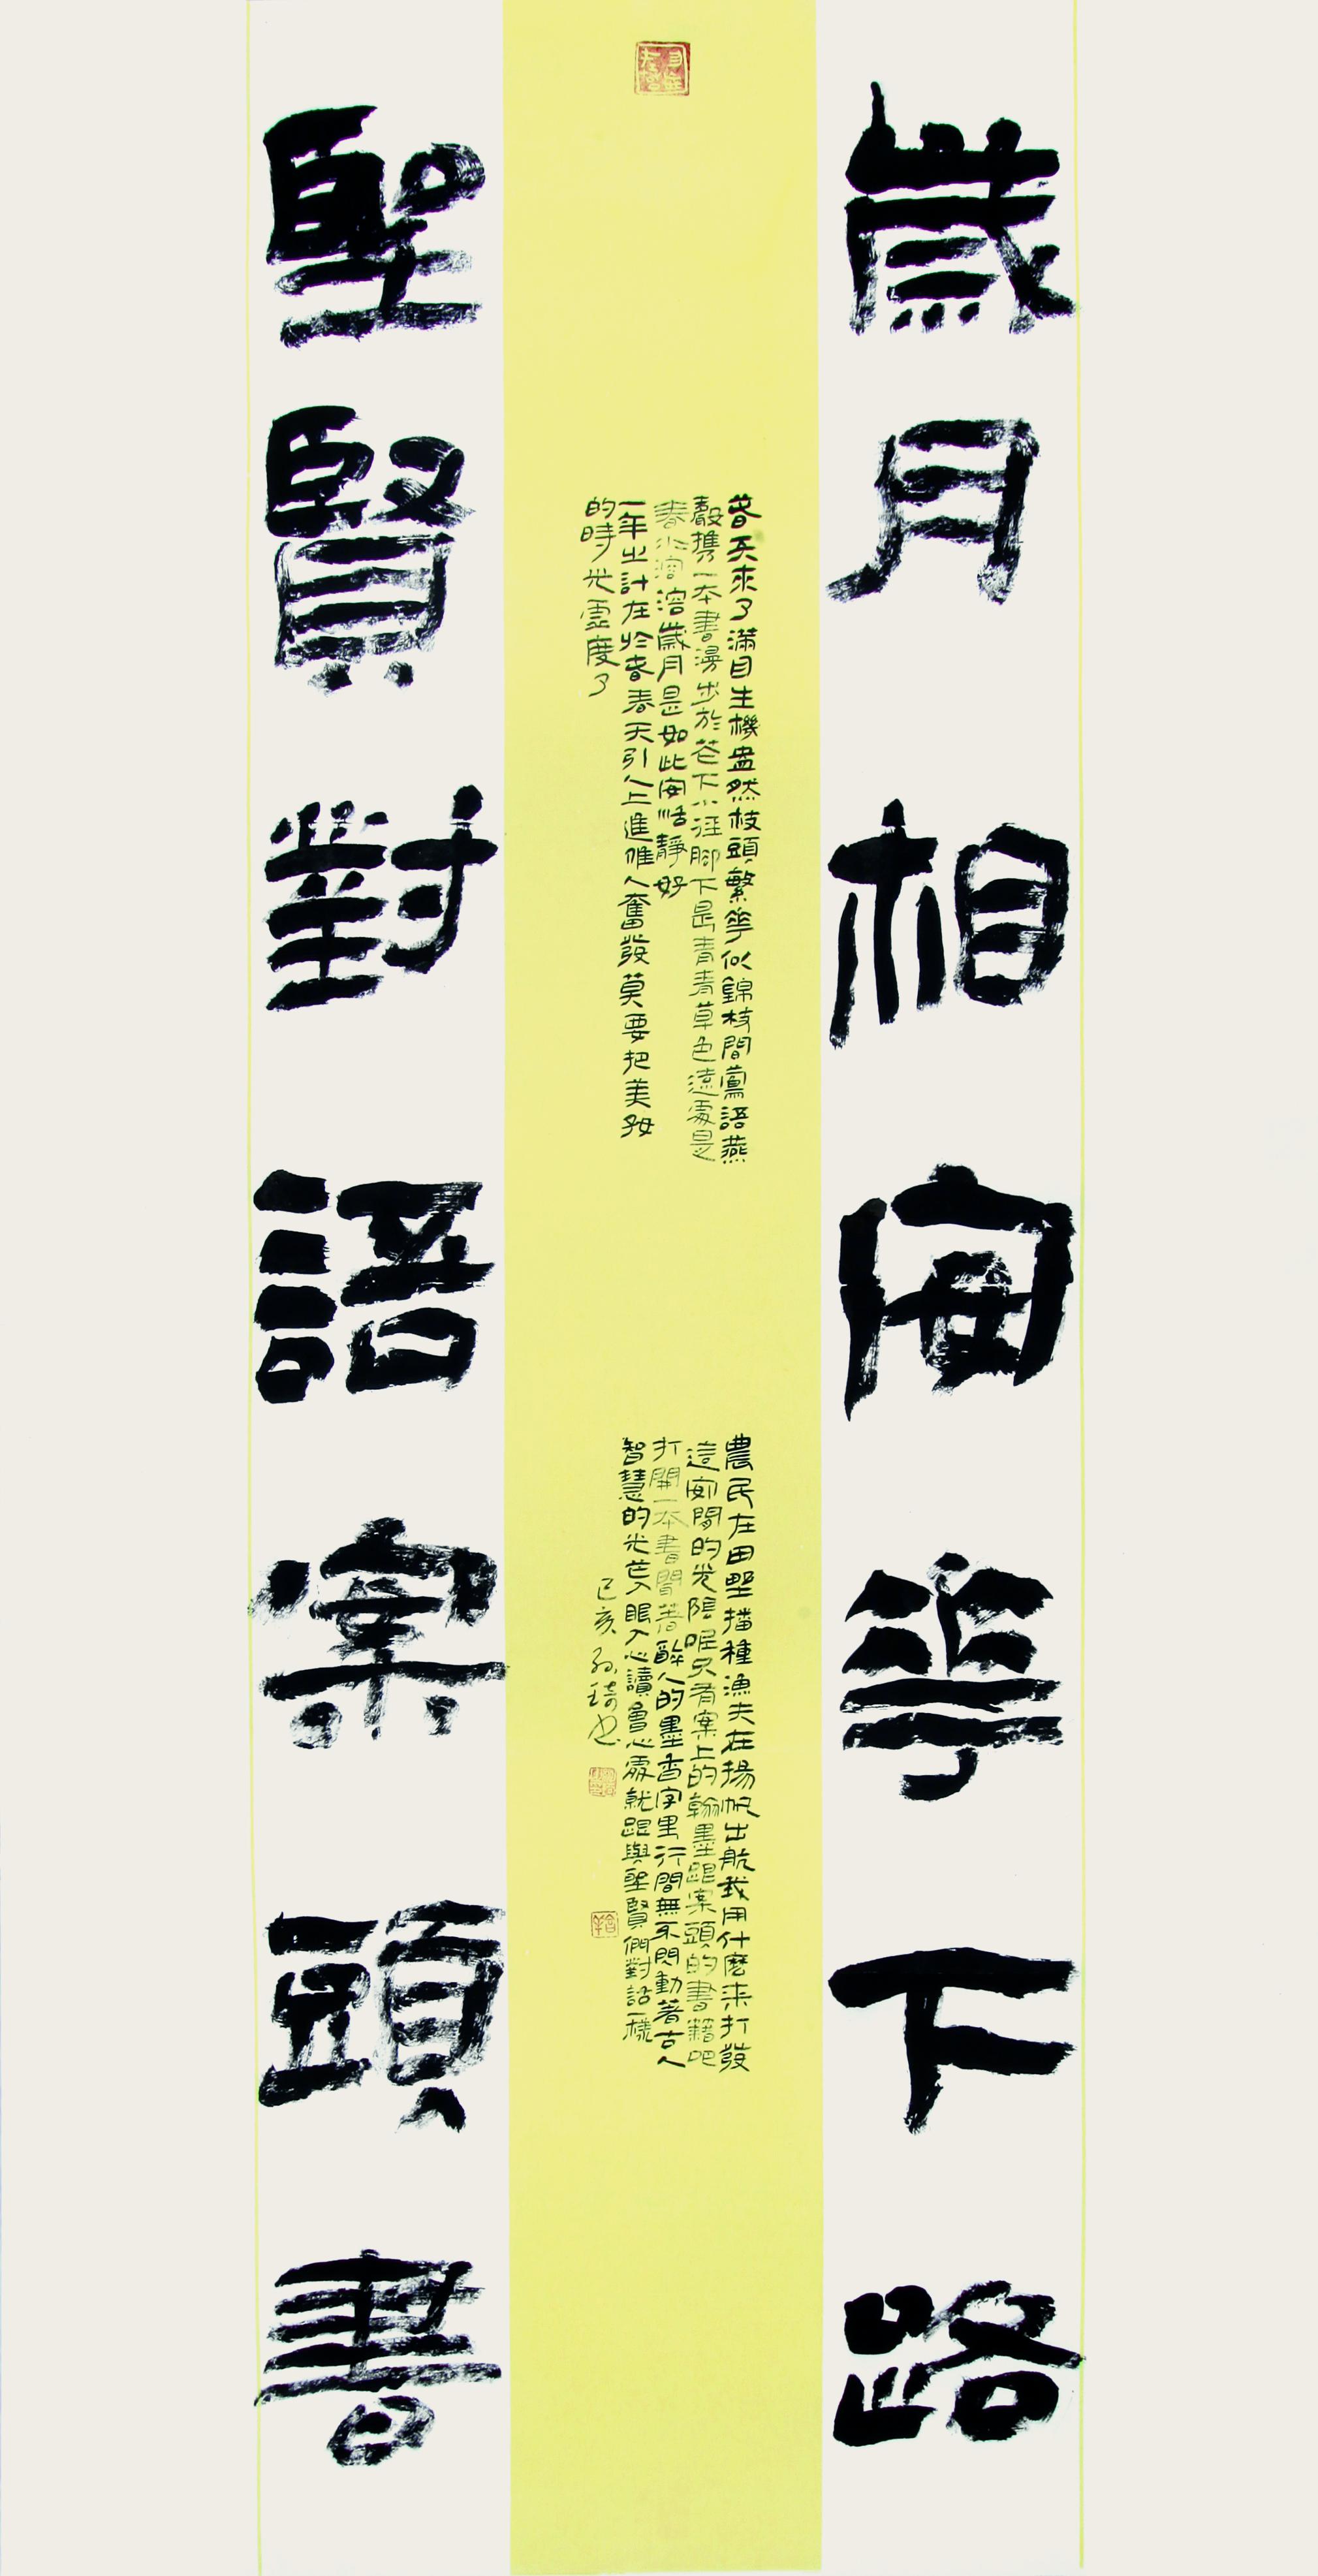 歲月相安華下路
春天來了滿目生機盎然枝頭繁華似錦枝間鶯語燕
聲攜一本書漫步於花下小徑腳下是青青草色遠處是
春水溶溶歲月是如此安恬靜好
一年之計在於春春天引人上進催人奮發莫要把美好
的時光虛度了
農民在田野播種漁夫在揚帆出航我用什麼来打發
這安閒的光陰呢只有案上的翰墨跟案頭的書籍吧
打開一本書聞著醉人的墨香字里行間無不閃動著古人
智慧的光芒入眼入心讀會心處就跟與聖賢們對話一樣
己亥孫琦書
聖賢對語案頭書